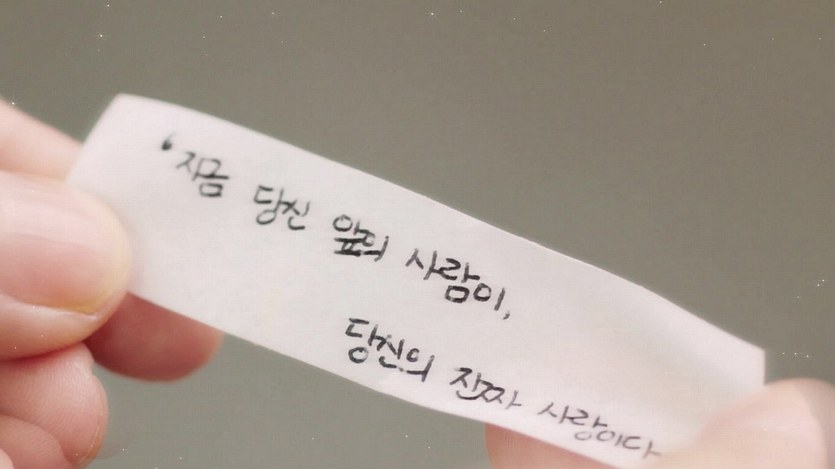 ‘지금 당신 앞의 사람이,
당신의 진짜 사랑이다